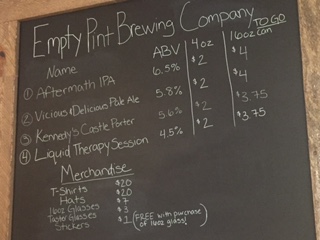 Empty Pint Brewing Company
Name ABV 4oz 16oz Can TO GO
① Aftermath IPA 6.5% $2 $4
② Vicious & Delicious Pale Ale 5.8% $2 $4
③ Kennedy's Castle Porter 5.6% $2 $3.75
④ Liquid Therapy Session 4.5% $2 $3.75
Merchandise
T-Shirts $20
Hats $20
16oz Glasses $7
Taster Glasses $3
Stickers $1 (FREE with purchase
of 16oz glass!)